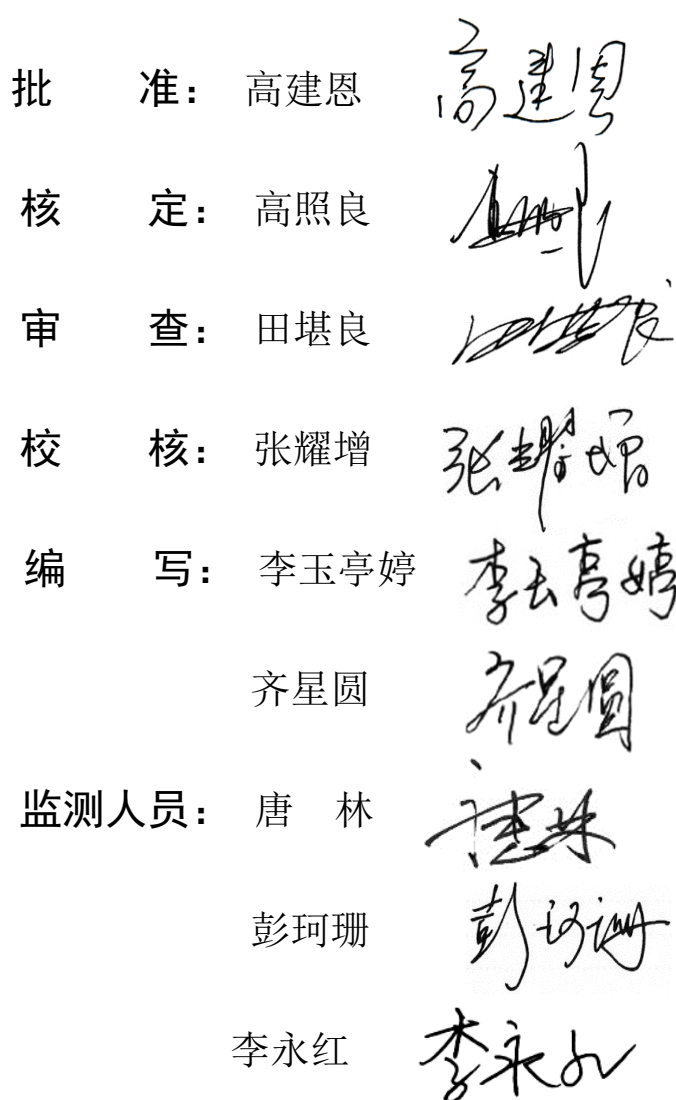 批　　准： 高建恩 高建恩
核　　定： 高照良
审　　查： 田堪良 田堪良
校　　核： 张耀增 张耀增
编　　写： 李玉亭婷 李玉亭婷
齐星圆 齐星圆
监测人员： 唐　林 唐林
彭珂珊 彭珂珊
李永红 李永红